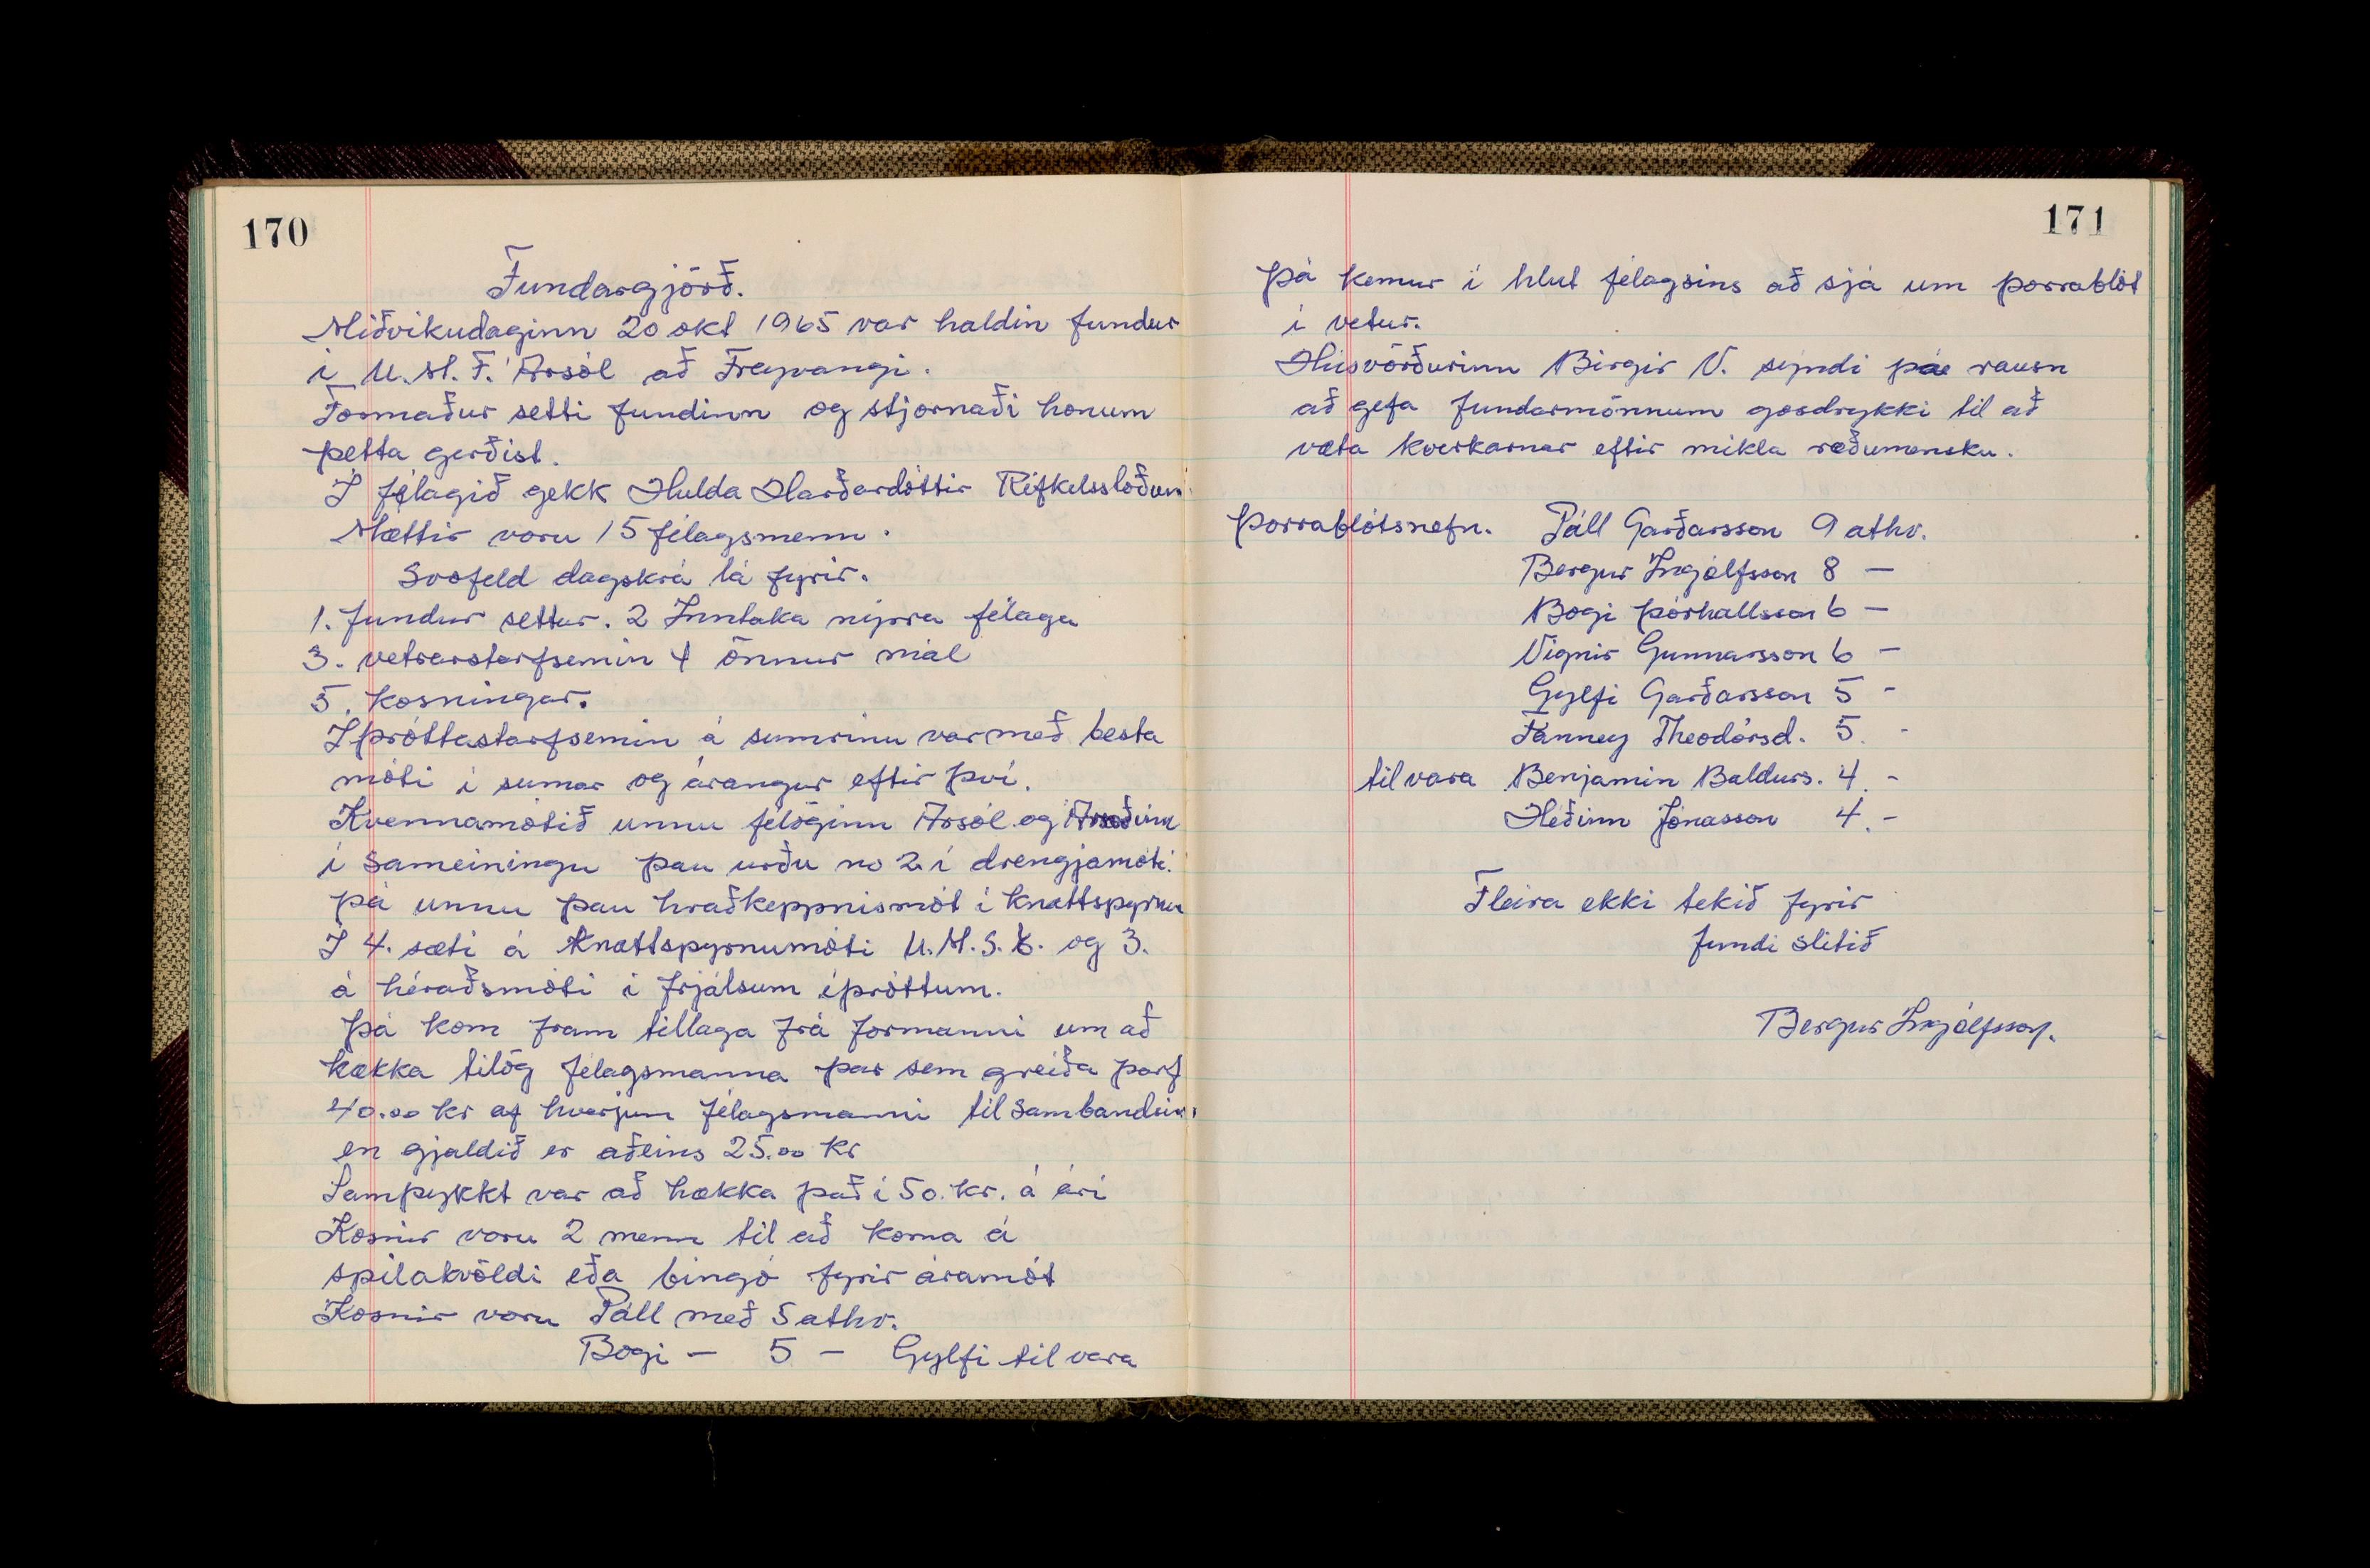 170
Fundargjörð.
Miðvikudaginn 20 okt 1965 var haldin fundur
í U.M.F. Ársól að Freyvangi.
Formaður setti fundinn og stjornaði honum
þetta gerðist.
Í félagið gekk Hulda Harðardóttir Rifkelsstöðum
Mættir voru 15 félagsmenn.
Svofeld dagskrá lá fyrir.
1. fundur settur. 2 Inntaka nýrra félaga
3. vetrarstarfsemin 4 önnur mál
5. kosningar.
Íþróttastarfsemin á sumrinu var með besta
móti í sumar og árangur eftir því.
Kvennamótið unnu félöginn Ársól og Árroðinn
í sameiningu þau urðu no 2 í drengjamóti.
þá unnu þau hraðkeppnismót í knattspyrnu
Í 4. sæti á knattspyrnumóti U.M.S.E. og 3.
á héraðsmóti í frjálsum íþróttum.
þá kom fram tillaga frá formanni um að
hækka tilög félagsmanna þar sem greiða þarf
40.00 kr af hverjum félagsmanni til sambandsins
en gjaldið er aðeins 25.00 kr
Samþykkt var að hækka það í 50. kr. á ári
Kosnir voru 2 menn til að koma á
spilakvöldi eða bingó fyrir áramót
Kosnir voru Páll með 5 athv.
Bogi – 5 – Gylfi til vara
171
þá kemur í hlut félagsins að sjá um þorrablót
í vetur.
Húsvörðurinn Birgir V. sýndi þá rausn
að gefa fundarmönnum gosdrykki til að
væta kverkarnar eftir mikla ræðumensku.
þorrablótsnefn. Páll Garðarsson 9 athv.
Bergur Ingólfsson 8 –
Bogi þórhallsson 6 –
Vignir Gunnarsson 6 –
Gylfi Garðarsson 5 -
Fanney Theodórsd. 5. -
til vara Benjamin Baldurs. 4. -
Héðinn Jónasson 4. -
Fleira ekki tekið fyrir
fundi slitið
Bergur Ingólfsson.